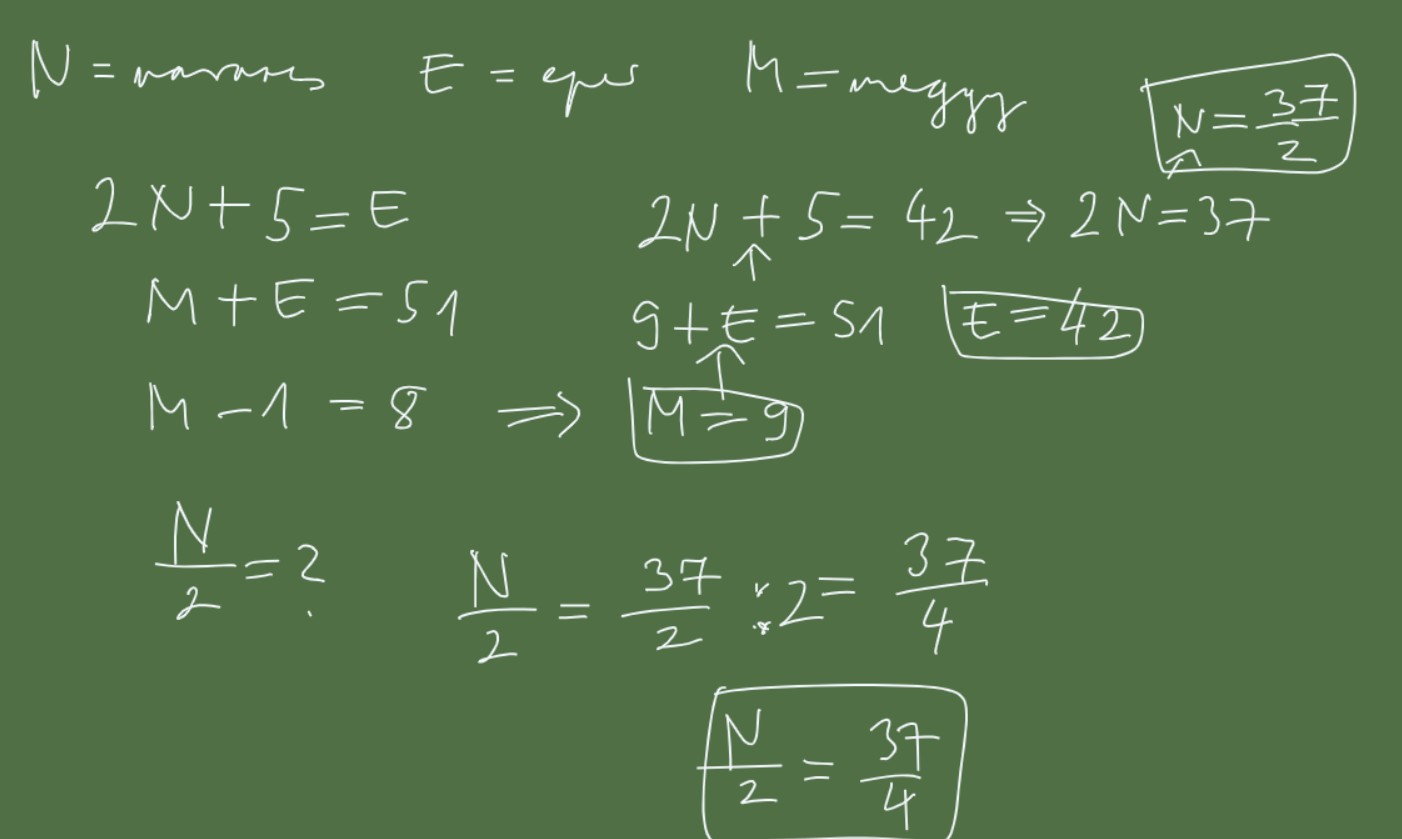 N = narancs E = eper M = meggy
N = 37/2
2N + 5 = E 2N + 5 = 42 ⇒ 2N = 37
↑
M + E = 51 9 + E = 51 E = 42
↑
M - 1 = 8 ⇒ M = 9
N/2 = ? N/2 = 37/2 : 2 = 37/4
N/2 = 37/4